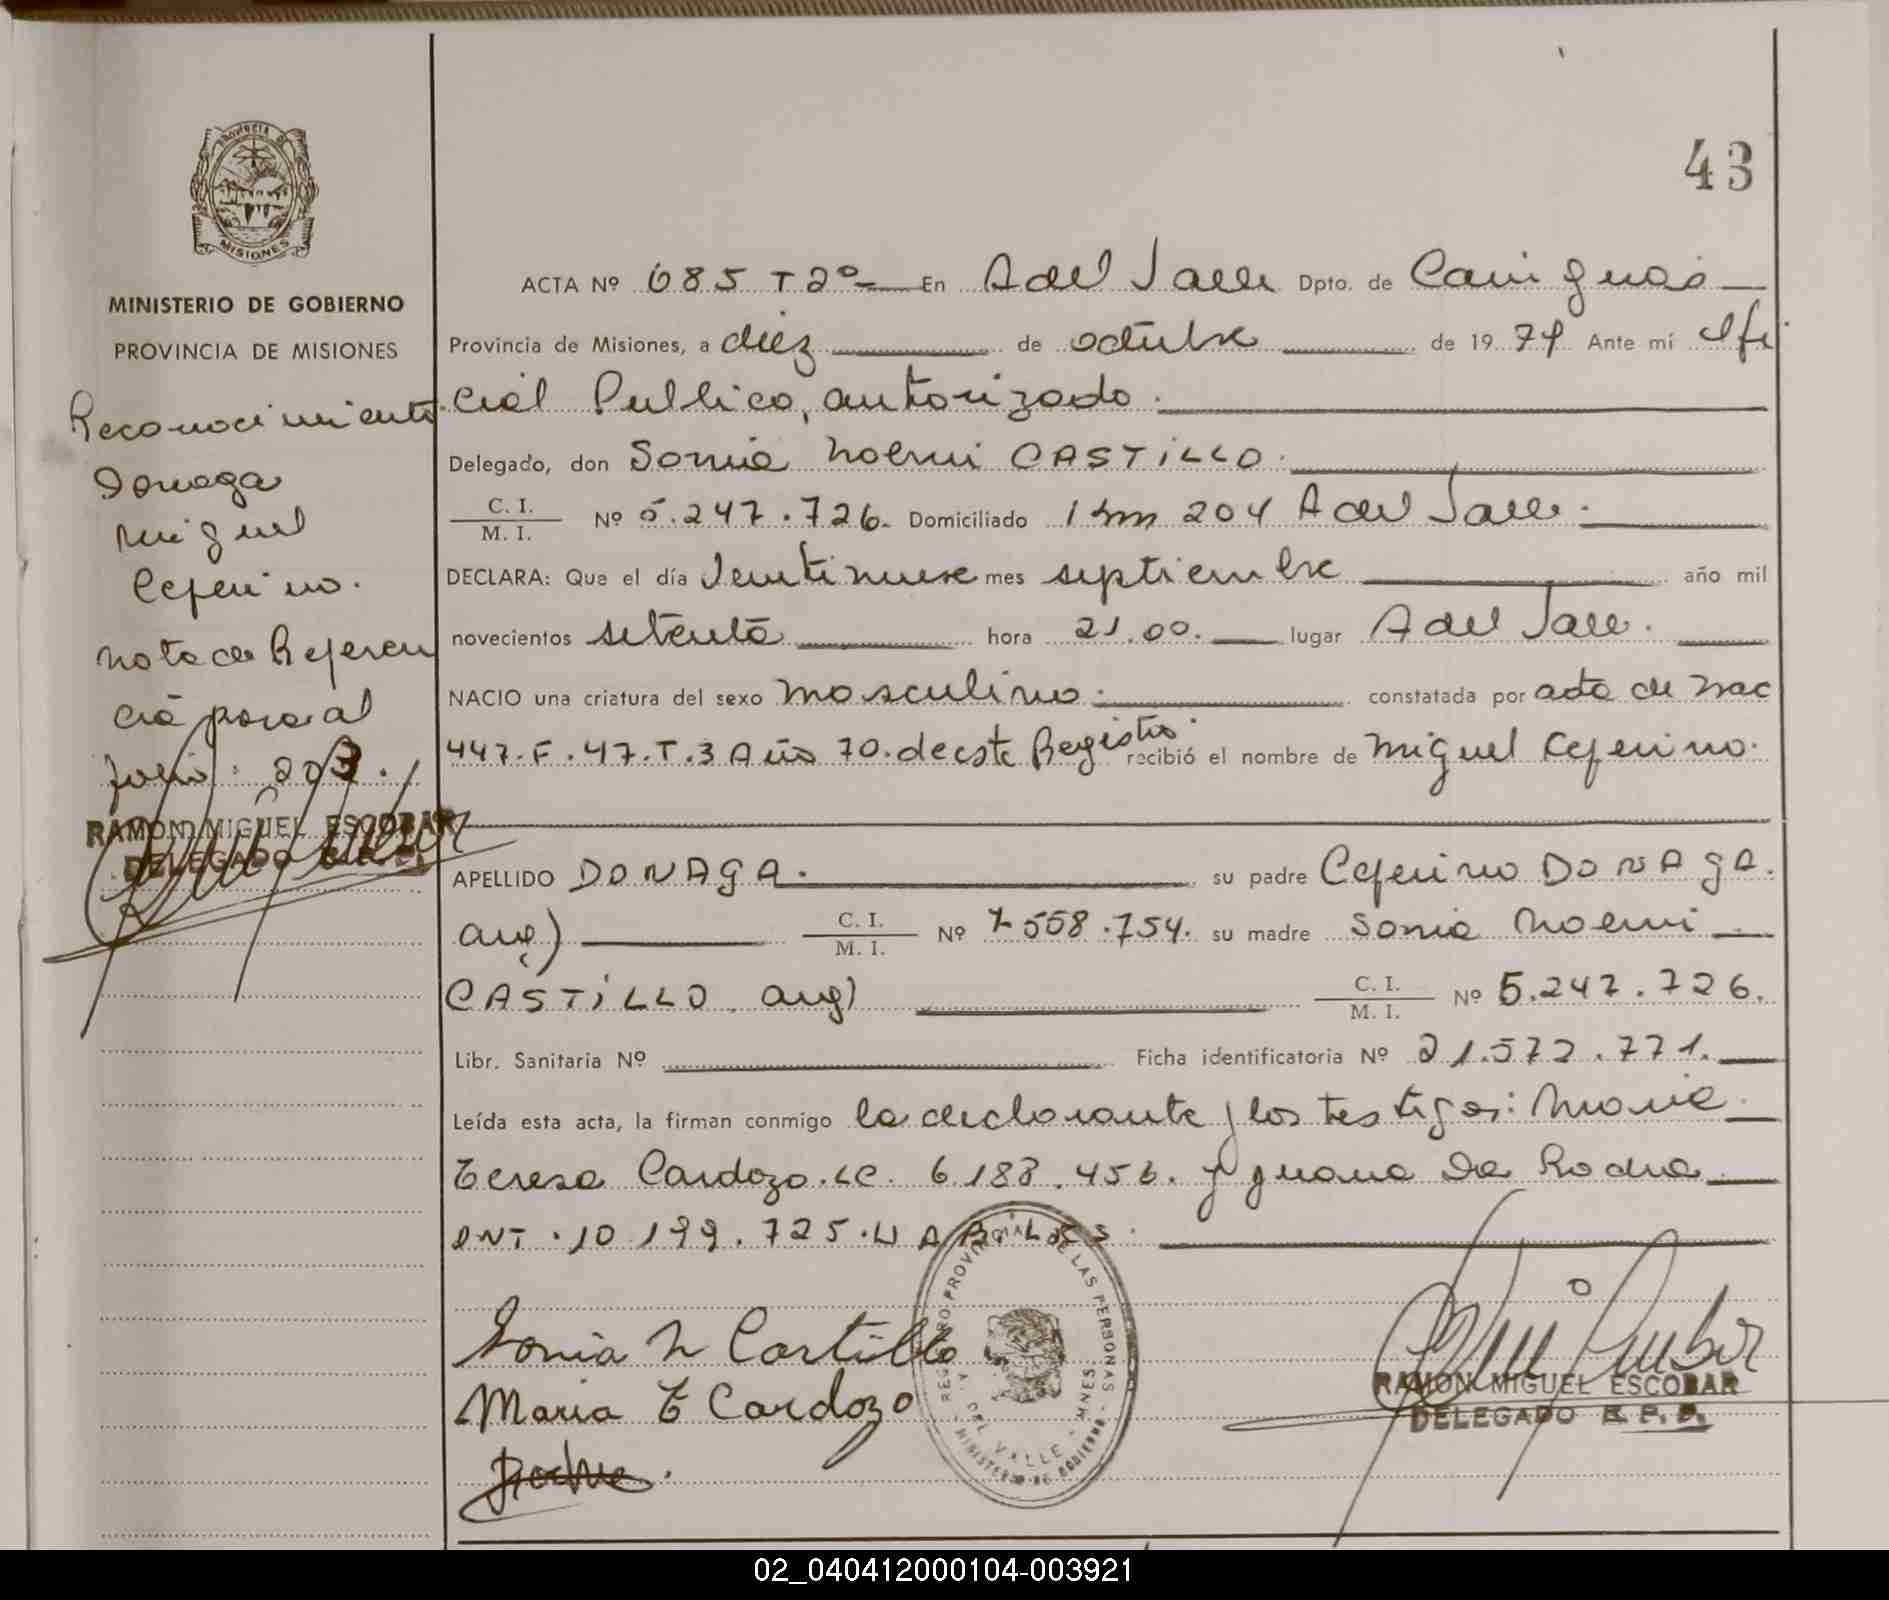 43
PROVINCIA DE
MISIONES
MINISTERIO DE GOBIERNO
PROVINCIA DE MISIONES
Reconocimiento
Donaga
Miguel
Ceferino.
Nota de Referen
cia para al
folio: 203.
RAMON MIGUEL ESCOBAR
DELEGADO R. P. P.
ACTA Nº 685 T2º En A del Valle Dpto. de Cainguás
Provincia de Misiones, a diez de octubre de 1974 Ante mí Ofi
cial Publico, autorizado.
Delegado, don Sonia Noemi CASTILLO.
C. I.
M. I. Nº 5.247.726. Domiciliado Km 204 A del Valle.
DECLARA: Que el día Veintinueve mes septiembre año mil
novecientos setenta hora 21.00. lugar A del Valle.
NACIO una criatura del sexo masculino. constatada por acta de Nac
447.F.47.T.3 Año 70. de este Registro. recibió el nombre de Miguel Ceferino.
APELLIDO DONAGA. su padre Ceferino DONAGA.
arg) C. I.
M. I. Nº 7.558.754. su madre Sonia Noemi
CASTILLO arg) C. I.
M. I. Nº 5.247.726.
Libr. Sanitaria Nº Ficha identificatoria Nº 21.572.771.
Leída esta acta, la firman conmigo la declarante y los testigos: Maria
Teresa Cardozo. LC. 6.183.456. y Juana Da Rocha
DNI. 10.199.725. HABILES.
REGISTRO PROVINCIAL DE LAS PERSONAS
A. DEL VALLE - MNES
MINISTERIO DE GOBIERNO
Sonia N Castillo
Maria T Cardozo
RAMON MIGUEL ESCOBAR
DELEGADO R. P. P.
02_040412000104-003921